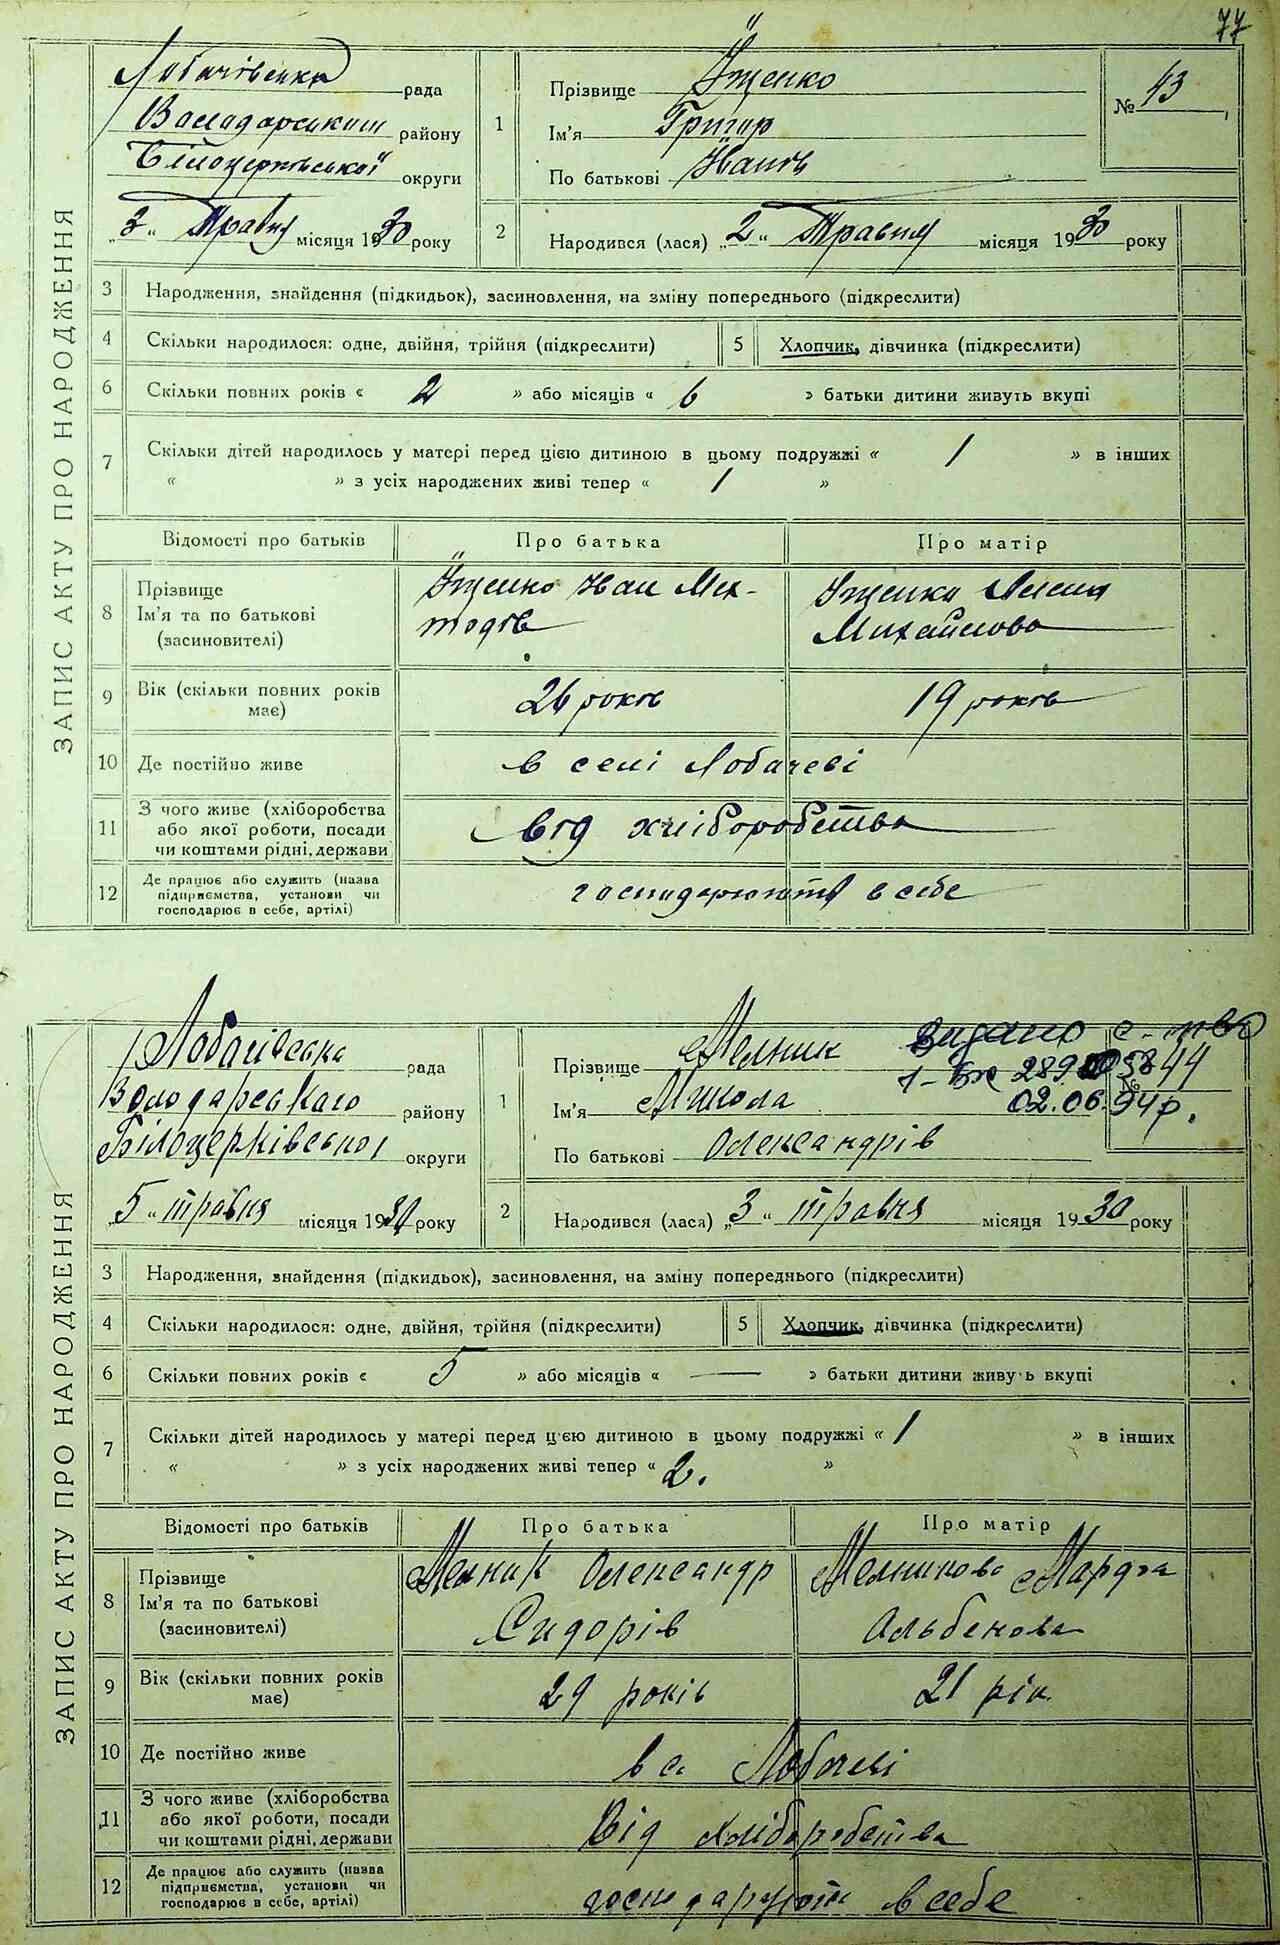 77
ЗАПИС АКТУ ПРО НАРОДЖЕННЯ
Лобачівська рада
Володарського району
Білоцерківської округи
„3“ Травня місяця 1930 року
1
Прізвище Їщенко
Ім’я Григор
По батькові Їванів
№ 43
2 Народився (лася) „2“ Травня місяця 1930 року
3 Народження, знайдення (підкидьок), засиновлення, на зміну попереднього (підкреслити)
4 Скільки народилося: одне, двійня, трійня (підкреслити)
5 Хлопчик, дівчинка (підкреслити)
6 Скільки повних років « 2 » або місяців « 6 » батьки дитини живуть вкупі
7 Скільки дітей народилось у матері перед цією дитиною в цьому подружжі « 1 » в інших
« » з усіх народжених живі тепер « 1 »
Відомості про батьків Про батька Про матір
8 Прізвище
Ім’я та по батькові
(засиновителі)
Їщенко Иван Ме-
тодів
Їщенко
Михайлова
9 Вік (скільки повних років
має)
26 років 19 років
10 Де постійно живе в селі Лобачеві
11 З чого живе (хліборобства
або якої роботи, посади
чи коштами рідні, держави
від хліборобства
12 Де працює або служить (назва
підприємства, установи чи
господарює в себе, артілі)
господарюють в себе
ЗАПИС АКТУ ПРО НАРОДЖЕННЯ
Лобачівська рада
Володарського району
Білоцерківської округи
„5“ травня місяця 1930 року
1
Прізвище Мельник
Ім’я Микола
По батькові Олександрів
№ 44
видано с-тво
02.06.94р.
2 Народився (лася) „3“ травня місяця 1930 року
3 Народження, знайдення (підкидьок), засиновлення, на зміну попереднього (підкреслити)
4 Скільки народилося: одне, двійня, трійня (підкреслити)
5 Хлопчик, дівчинка (підкреслити)
6 Скільки повних років « 5 » або місяців « — » батьки дитини живуть вкупі
7 Скільки дітей народилось у матері перед цією дитиною в цьому подружжі « 1 » в інших
« » з усіх народжених живі тепер « 2. »
Відомості про батьків Про батька Про матір
8 Прізвище
Ім’я та по батькові
(засиновителі)
Мелник Олександр
Сидорів
Мелникова
Альбенова
9 Вік (скільки повних років
має)
29 років 21 рік
10 Де постійно живе в с. Лобачеві
11 З чого живе (хліборобства
або якої роботи, посади
чи коштами рідні, держави
Від хліборобства
12 Де працює або служить (назва
підприємства, установи чи
господарює в себе, артілі)
господарюють в себе